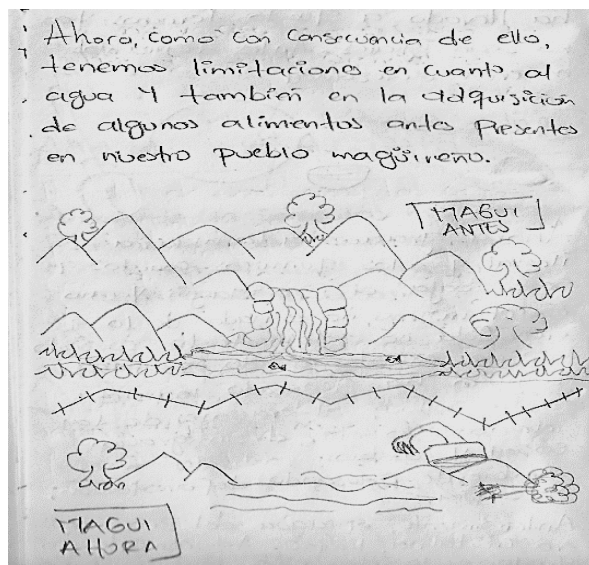 Ahora, como con consecuencia de ello,
tenemos limitaciones en cuanto al
agua Y también en la adquisición
de algunos alimentos antes Presentes
en nuestro pueblo magüireño.
MAGUI
ANTES
MAGUI
AHORA